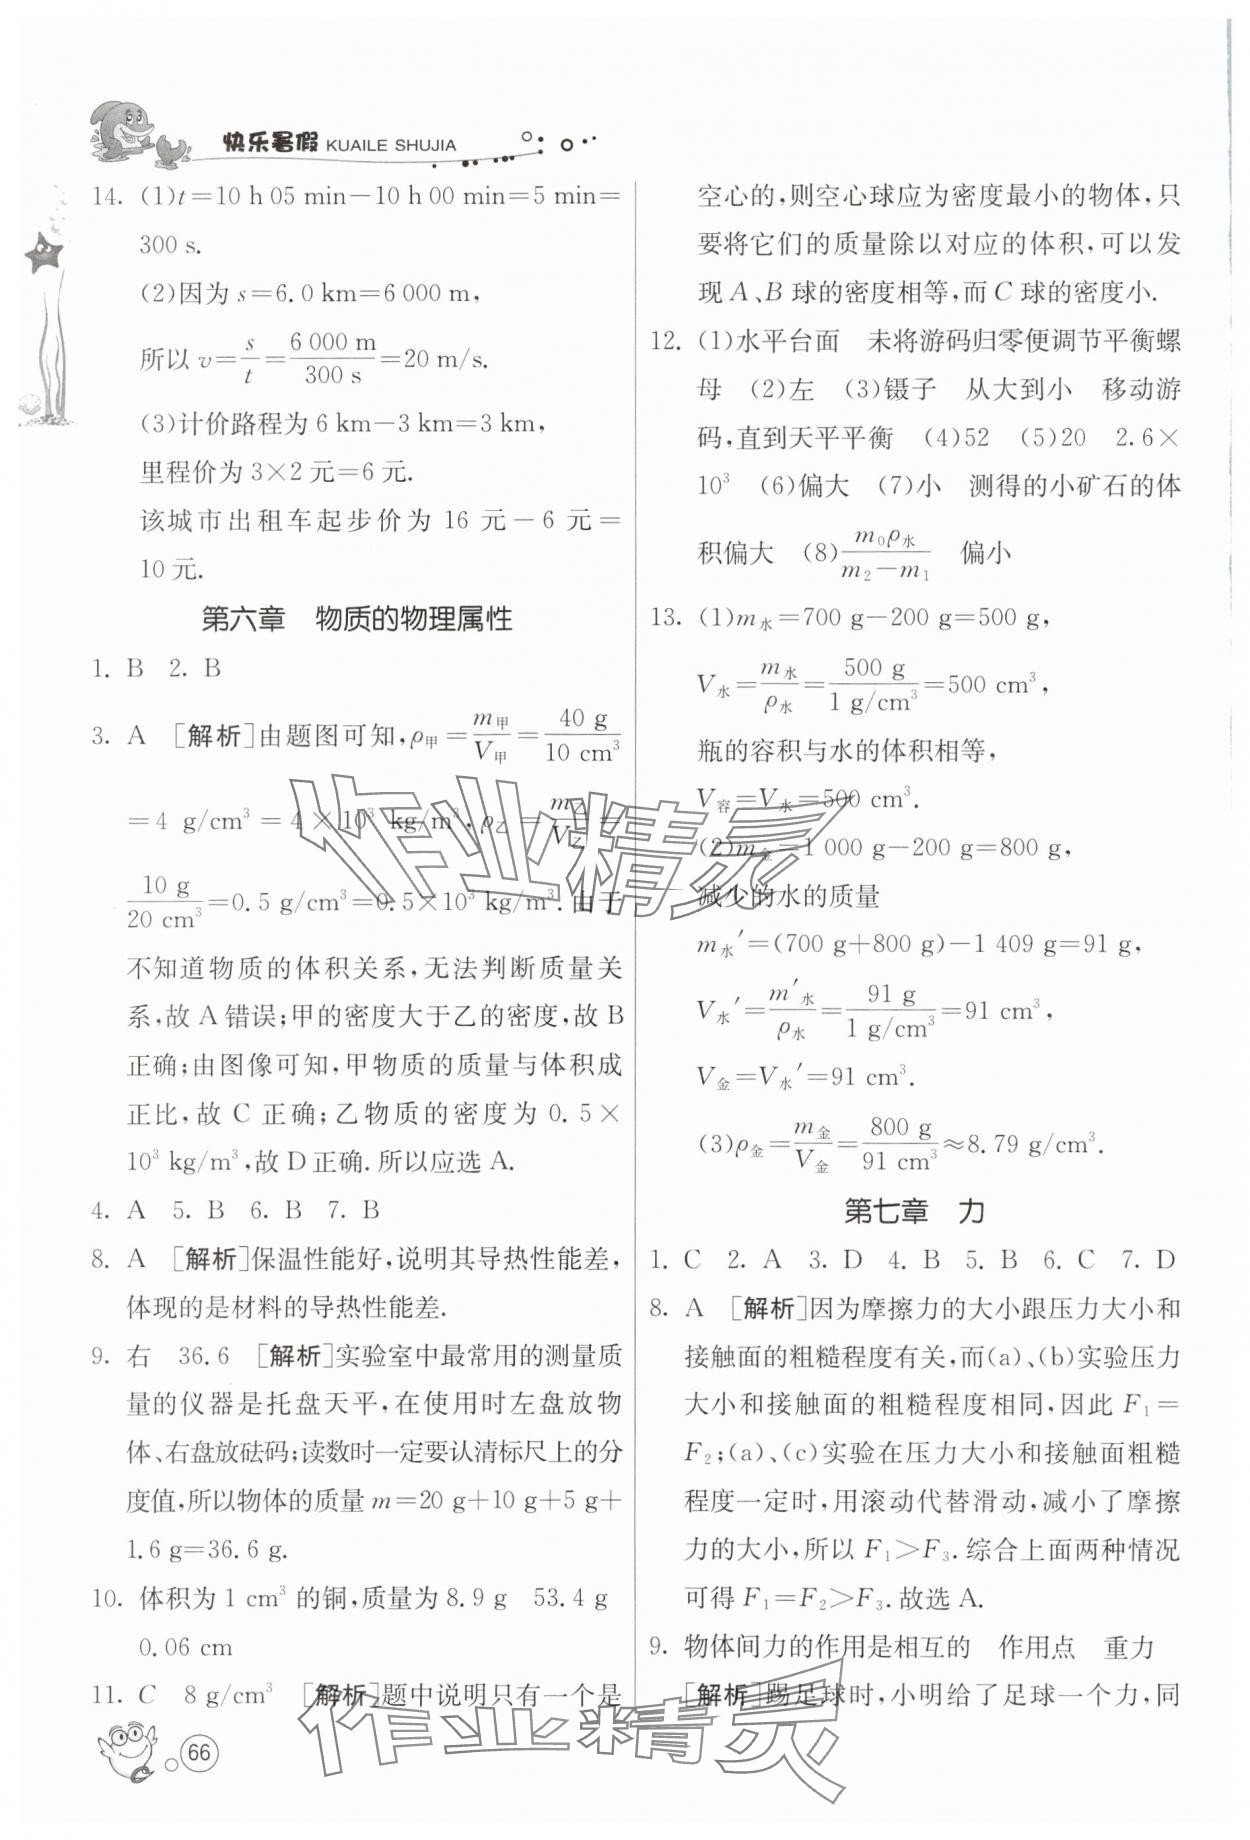 快乐暑假 KUAILE SHUJIA
14. (1)t=10 h 05 min-10 h 00 min=5 min=
300 s.
(2)因为 s=6.0 km=6 000 m,
所以 v=s/t=6 000 m/300 s=20 m/s.
(3)计价路程为 6 km-3 km=3 km,
里程价为 3×2 元=6 元.
该城市出租车起步价为 16 元-6 元=
10 元.
第六章 物质的物理属性
1. B 2. B
3. A [解析]由题图可知,ρ甲=m甲/V甲=40 g/10 cm³
=4 g/cm³=4×10³ kg/m³,ρ乙=m乙/V乙=
10 g/20 cm³=0.5 g/cm³=0.5×10³ kg/m³.由于
不知道物质的体积关系,无法判断质量关
系,故 A 错误;甲的密度大于乙的密度,故 B
正确;由图像可知,甲物质的质量与体积成
正比,故 C 正确;乙物质的密度为 0.5×
10³ kg/m³,故 D 正确.所以应选 A.
4. A 5. B 6. B 7. B
8. A [解析]保温性能好,说明其导热性能差,
体现的是材料的导热性能差.
9. 右 36.6 [解析]实验室中最常用的测量质
量的仪器是托盘天平,在使用时左盘放物
体、右盘放砝码;读数时一定要认清标尺上的分
度值,所以物体的质量 m=20 g+10 g+5 g+
1.6 g=36.6 g.
10. 体积为 1 cm³ 的铜,质量为 8.9 g 53.4 g
0.06 cm
11. C 8 g/cm³ [解析]题中说明只有一个是
66
空心的,则空心球应为密度最小的物体,只
要将它们的质量除以对应的体积,可以发
现 A、B 球的密度相等,而 C 球的密度小.
12. (1)水平台面 未将游码归零便调节平衡螺
母 (2)左 (3)镊子 从大到小 移动游
码,直到天平平衡 (4)52 (5)20 2.6×
10³ (6)偏大 (7)小 测得的小矿石的体
积偏大 (8)m₀ρ水/m₂-m₁ 偏小
13. (1)m水=700 g-200 g=500 g,
V水=m水/ρ水=500 g/1 g/cm³=500 cm³,
瓶的容积与水的体积相等,
V容=V水=500 cm³.
(2)m金=1 000 g-200 g=800 g,
减少的水的质量
m水′=(700 g+800 g)-1 409 g=91 g,
V水′=m′水/ρ水=91 g/1 g/cm³=91 cm³,
V金=V水′=91 cm³.
(3)ρ金=m金/V金=800 g/91 cm³≈8.79 g/cm³.
第七章 力
1. C 2. A 3. D 4. B 5. B 6. C 7. D
8. A [解析]因为摩擦力的大小跟压力大小和
接触面的粗糙程度有关,而(a)、(b)实验压力
大小和接触面的粗糙程度相同,因此 F₁=
F₂;(a)、(c)实验在压力大小和接触面粗糙
程度一定时,用滚动代替滑动,减小了摩擦
力的大小,所以 F₁>F₃.综合上面两种情况
可得 F₁=F₂>F₃.故选 A.
9. 物体间力的作用是相互的 作用点 重力
[解析]踢足球时,小明给了足球一个力,同
作业精灵
作业精灵